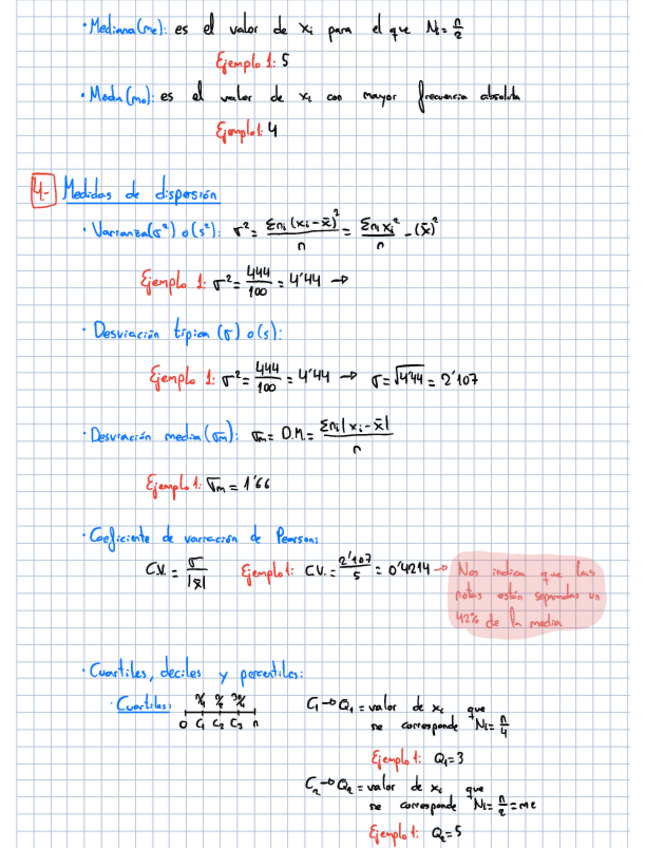 · Mediana (me): es el valor de xi para el que Ni = n/2
Ejemplo 1: 5
· Moda (mo): es el valor de xi con mayor frecuencia absoluta
Ejemplo 1: 4
4.- Medidas de dispersión
· Varianza (σ²) o (s²): σ² = Σni (xi - x̄)²/n = Σni xi²/n - (x̄)²
Ejemplo 1: σ² = 444/100 = 4'44 →
· Desviación típica (σ) o (s):
Ejemplo 1: σ² = 444/100 = 4'44 → σ = √4'44 = 2'107
· Desviación media (σm): σm = D.M. = Σni |xi - x̄|/n
Ejemplo 1: σm = 1'66
· Coeficiente de variación de Pearson:
C.V. = σ/|x̄| Ejemplo 1: C.V. = 2'107/5 = 0'4214 → Nos indica que las
notas están separadas un
42% de la media
· Cuartiles, deciles y percentiles:
· Cuartiles: n/4 n/2 3n/4
0 C1 C2 C3 n
C1 → Q1 = valor de xi que
se corresponde Ni = n/4
Ejemplo 1: Q1 = 3
C2 → Q2 = valor de xi que
se corresponde Ni = n/2 = me
Ejemplo 1: Q2 = 5